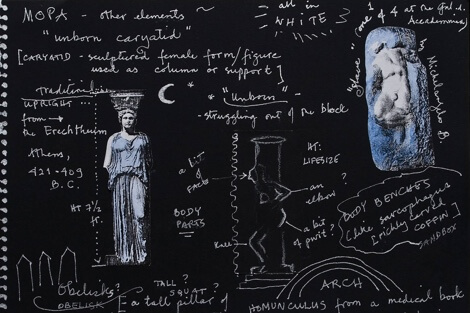 MOPA - other elements ~
"unborn caryatid"
[CARYATID - sculptured female form/figure
used as column or support]
all in
WHITE
"Slave" (one of 4 at the Gal. d.
Accademia)
by Michelangelo B.
Traditional
UPRIGHT
from →
the Erechtheum
Athens,
421-409
B.C.
HT 7½
ft.
* "Unborn" -
- struggling out of the block
a bit
of
FACE
BODY
PARTS
Knee
HT:
LIFESIZE
an
elbow
?
a bit
of
?
BODY BENCHES
(like sarcophagus
[richly carved
COFFIN]
SANDBOX
Obelisks?
OBELISK
TALL ?
SQUAT ?
[a tall pillar of
ARCH
HOMUNCULUS from a medical book